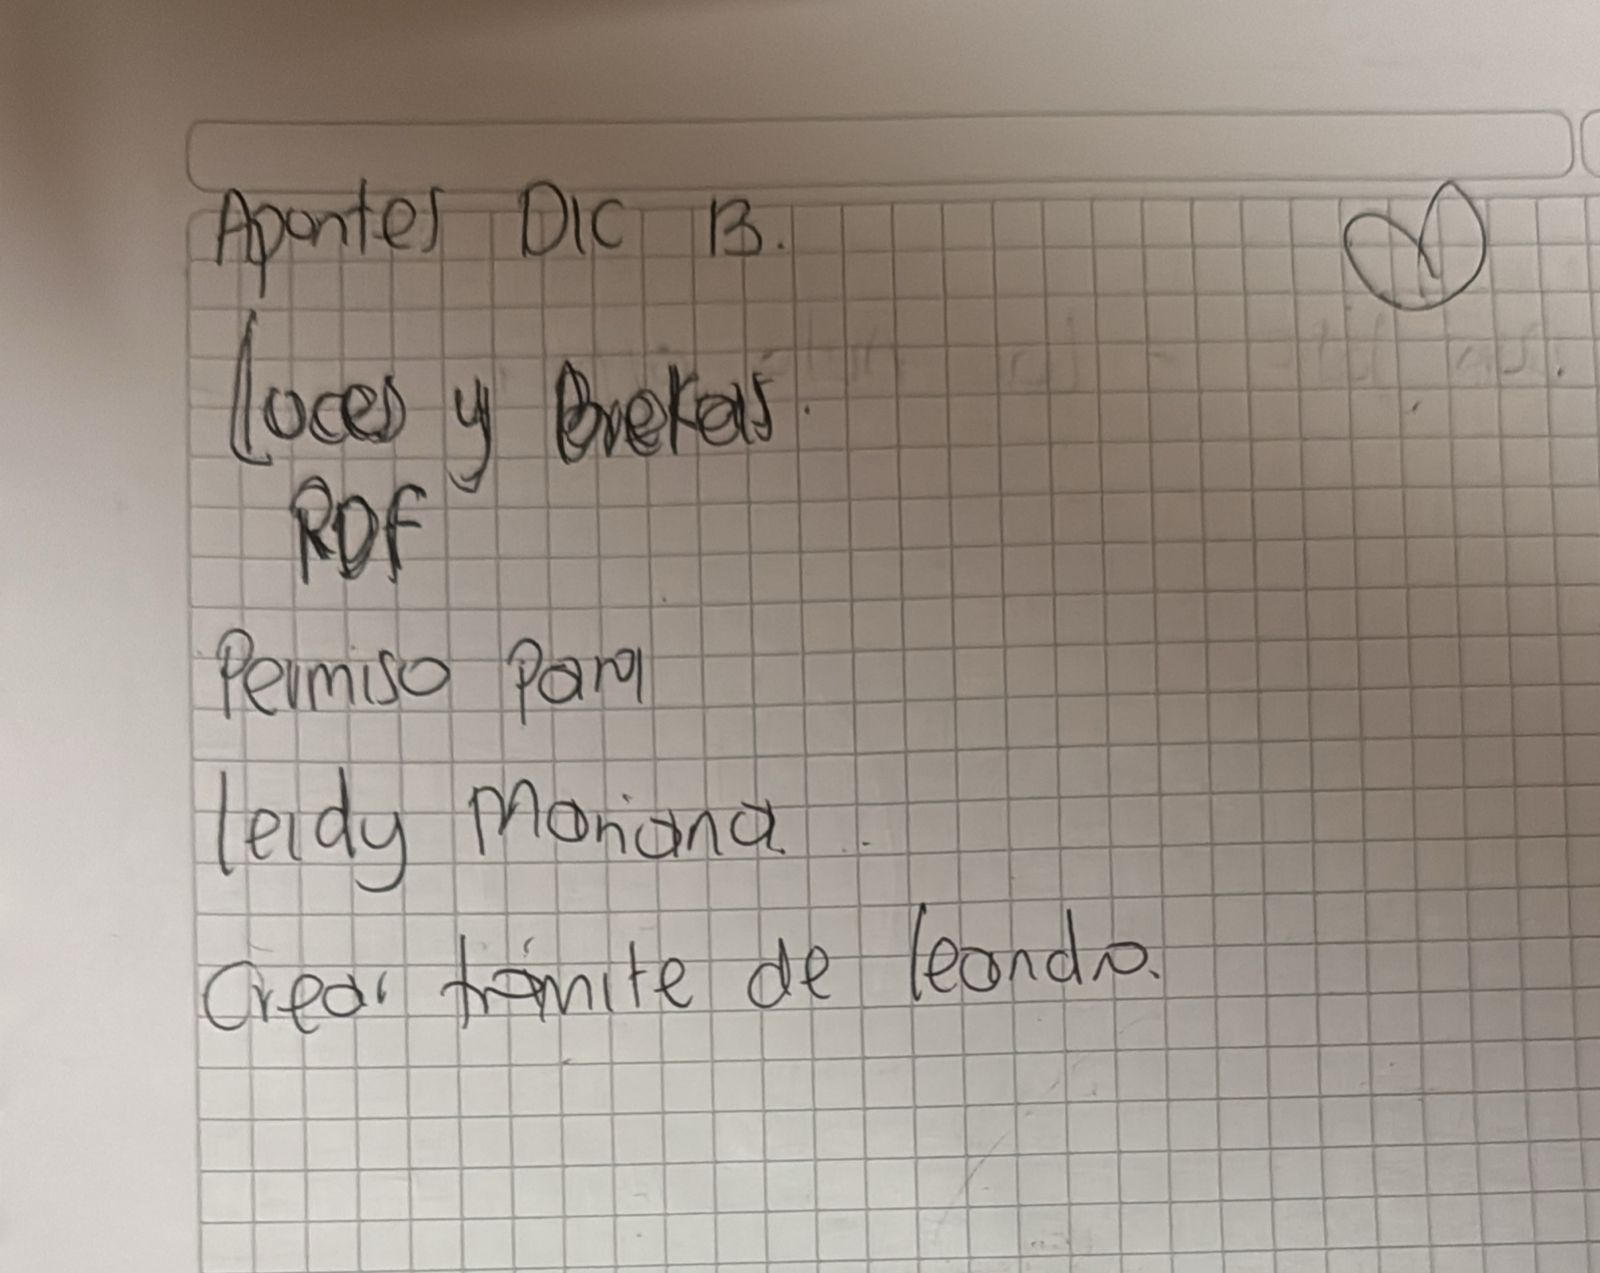 Apuntes DIC 13.
luces y Brekers.
RDF
Permiso para
leidy Mariana.
Crear trámite de leandro.